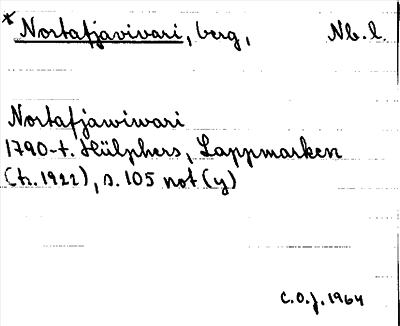 * Nortafjavivari, berg, Nb. l.
Nortafjawiwari
1790-t. Hülphers, Lappmarken
(tr. 1922), s. 105 not (y)
C.O.J. 1964